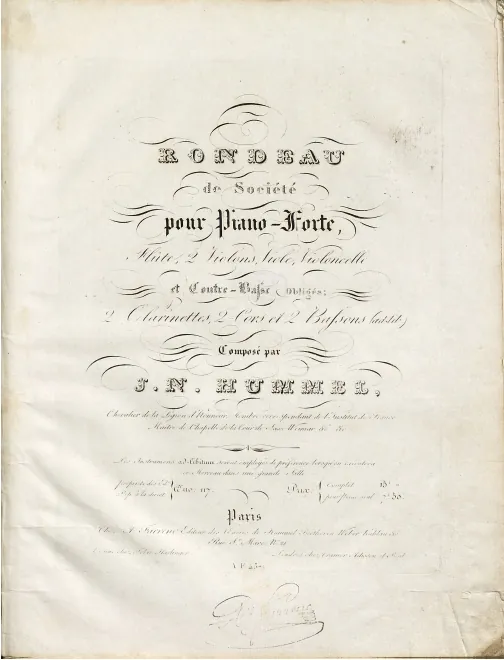 RONDEAU
de Société
pour Piano-Forte,
Flûte, 2 Violons, Viole, Violoncelle
et Contre-Basse Obligés;
2 Clarinettes, 2 Cors et 2 Bassons (ad lib:)
Composé par
J. N. HUMMEL,
Chevalier de la Légion d'Honneur, Membre correspondant de l'Institut de France
Maître de Chapelle de la Cour de Saxe Weimar &c &c
Les Instrumens ad Libitum seront employés de préférence lorsqu'on exécutera
ce Morceau dans une grande Salle
propriété des Ed.
Op. 117
Prix
Complet
pour Piano seul
Paris
Editeur des Œuvres de
Rue St Marc
A.F.